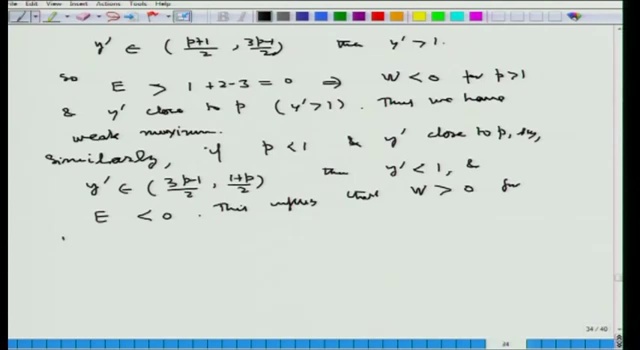 File View Insert Actions Tools Help
y' ∈ ( p+1/2 , 3p-1/2 ) then y' > 1.
So E > 1 + 2 - 3 = 0 ⇒ W < 0 for p > 1
& y' close to p ( y' > 1 ) . Thus we have
weak maximum.
Similarly, if p < 1 & y' close to p, say,
y' ∈ ( 3p-1/2 , 1+p/2 ) then y' < 1, &
E < 0 . This implies that W > 0 for
34 / 40
34